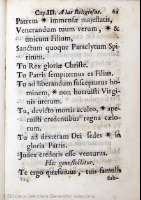 Cap. III. A las Religiosas. 62
Patrem * immensæ majestatis,
Venerandum tuum verum, * &
unicum Filium,
Sanctum quoque Paraclytum Spi-
ritum.
Tu Rex gloriæ Christe.
Tu Patris sempiternus es Filius.
Tu ad liberandum suscepturus ho-
minem, * non horruisti Virgi-
nis uterum.
Tu, devicto mortis aculeo, * ape-
ruisti credentibus regna cælo-
rum.
Tu ad dexteram Dei sedes * in
gloria Patris.
Judex crederis esse venturus.
Hic genuflectitur.
Te ergo quæsumus, tuis famulis